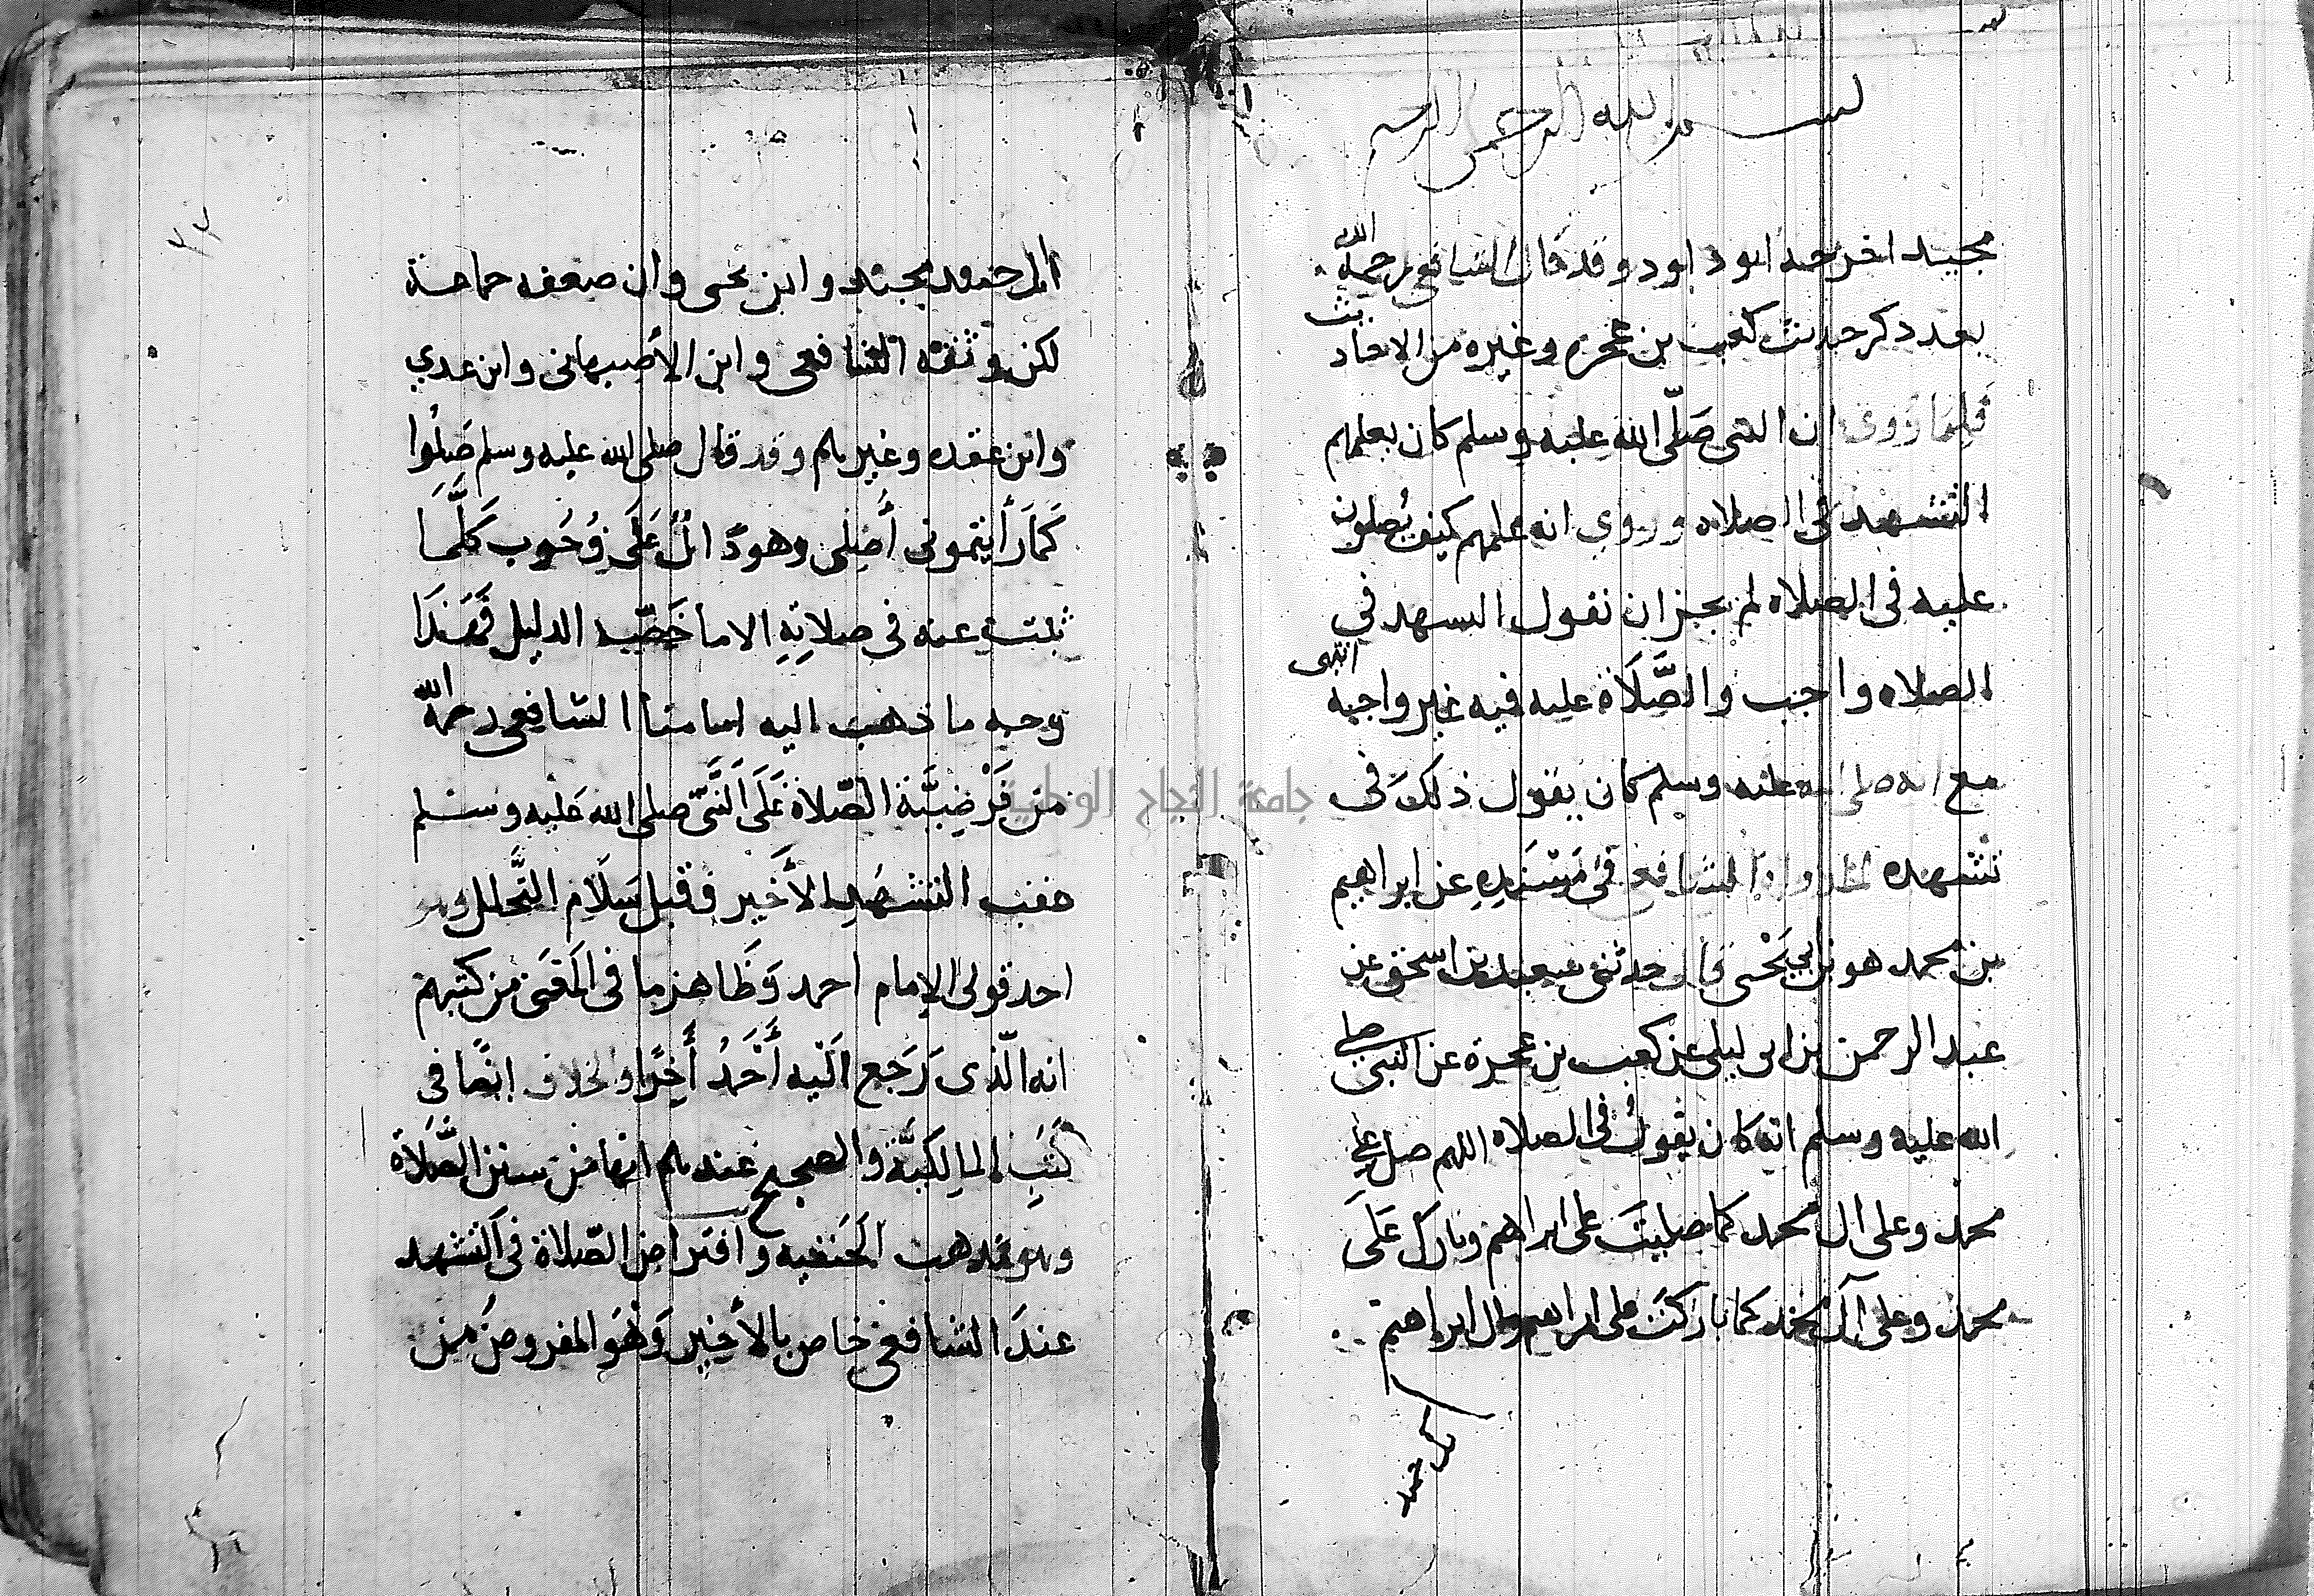 بسم الله الرحمن الرحيم
مجيد اخرجه ابو داود وقد قال الشافعي رحمه الله
بعد ذكر حديث كعب بن عجرة وغيره من الاحاديث
فلما روى ان النبى صَلّى الله عليه وسلم كان يعلمهم
التشهد فى الصلاه وروى انه علمهم كيف يصلون
عليه فى الصلاه لم يجز ان نقول التشهد في
الصلاه واجب والصَّلَاة عليه فيه غير واجبه انتهى
مع انه صلى الله عليه وسلم كان يقول ذلكَ فى
تشهده الشافعى فى مسنَدِهِ عن ابراهيم
بن محمد هو بن ابى يَحْيى قال حدثنى سعيد بن اسحق عن
عبد الرحمن بن ابى ليلى عن كعب بن عجرة عن النبى صلى
الله عليه وسلم انه كان يقولُ فى الصلاه اللهم صل على
محمد وعلى ال محمد كما صليتَ على ابراهيم وبارك عَلَى
محمد وعلى آل محمد كما باركتَ على ابراهيم وال ابراهيم
انك حميد
وابن يحيى وان ضعفه جماعة
لكن وثقه الشافعى وابن الأصبهانى وابن عدي
وابن عقده وغيرهم وقد قال صلى الله عليه وسلم صَلُّوا
كَمَا رَأيتمونى أُصَلى وهو دَالٌّ عَلَى وُجُوب كلَّما
ثبت عنه فى صلاتِهِ الا ما خَصَّه الدليل فَهَذَا
وجه ما ذهب اليه امامنا الشافعى رحمه الله
من فَرْضِيَّة الصّلاة عَلَى النَّبى صلى الله عَليه وسلم
عقب التشهد الأخير وقبل سَلَام التَّحلل وهو
احد قولى الإمام احمد وَظَاهر ما فى المغنى من كتبهم
انه الّذى رَجع الَيْه أَحْمَدُ أَخِيرًا والخلاف ايضًا فى
كتبِ المالِكيَّة والصحيح عندهم انها من سنن الصَّلَاة
وهو مذهب الحَنفيه وافتراض الصّلاة فى التشهد
عندَ الشافعى خاص بالأخير وَهُوَ المفروض من